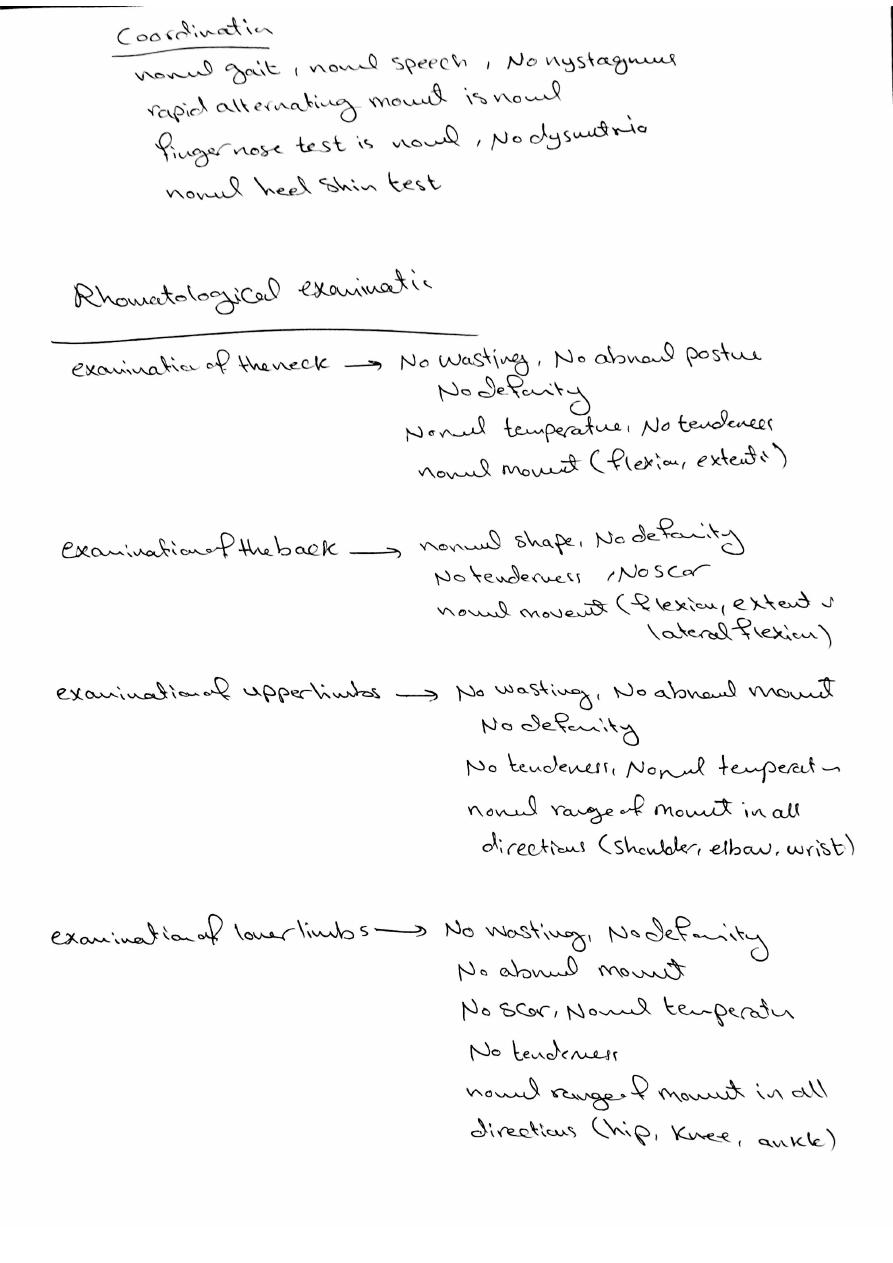 Coordination
normal gait, normal speech, No nystagmus
rapid alternating movment is normal
finger nose test is normal, No dysmetria
normal heel shin test
Rhomatological examination
examination of the neck → No wasting, No abnormal posture
No deformity
Normal temperature, No tenderness
normal movment (flexion, extention)
examination of the back → normal shape, No deformity
No tenderness, No scar
normal movement (flexion, extention
lateral flexion)
examination of upper limbs → No wasting, No abnormal movment
No deformity
No tenderness, Normal temperature
normal range of movment in all
directions (shoulder, elbow, wrist)
examination of lower limbs → No wasting, No deformity
No abnormal movment
No scar, Normal temperature
No tenderness
normal range of movment in all
directions (hip, knee, ankle)